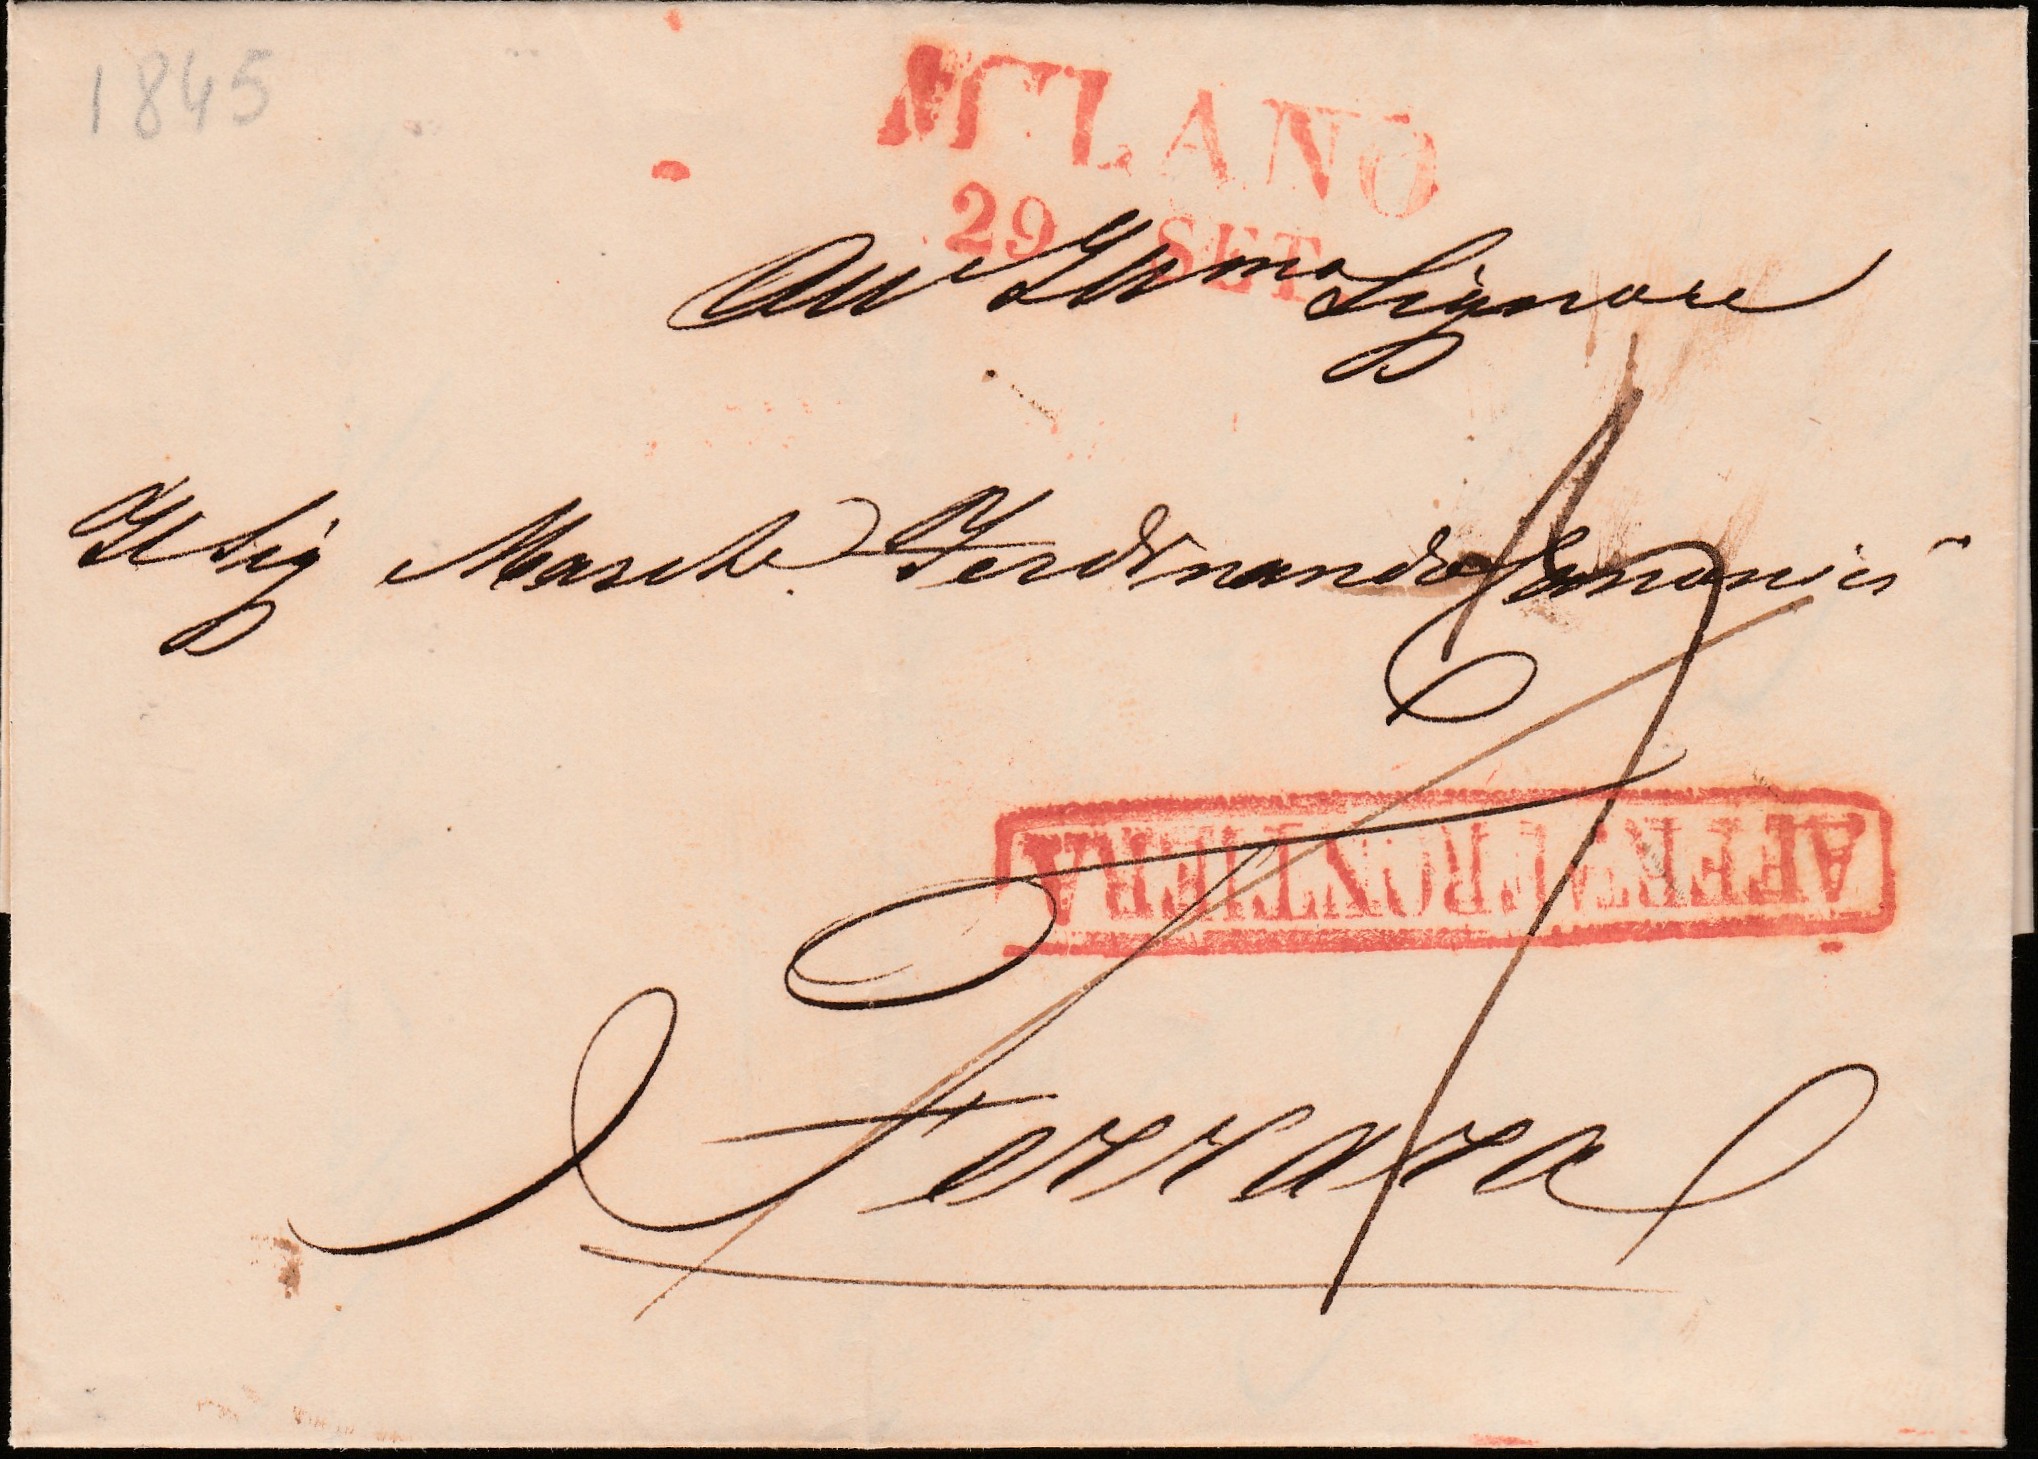 1845
MILANO
29 SET.
All' Illmo Signore
Il Sig March.e Ferdinando
AFF. FRONTIERA
Ferrara